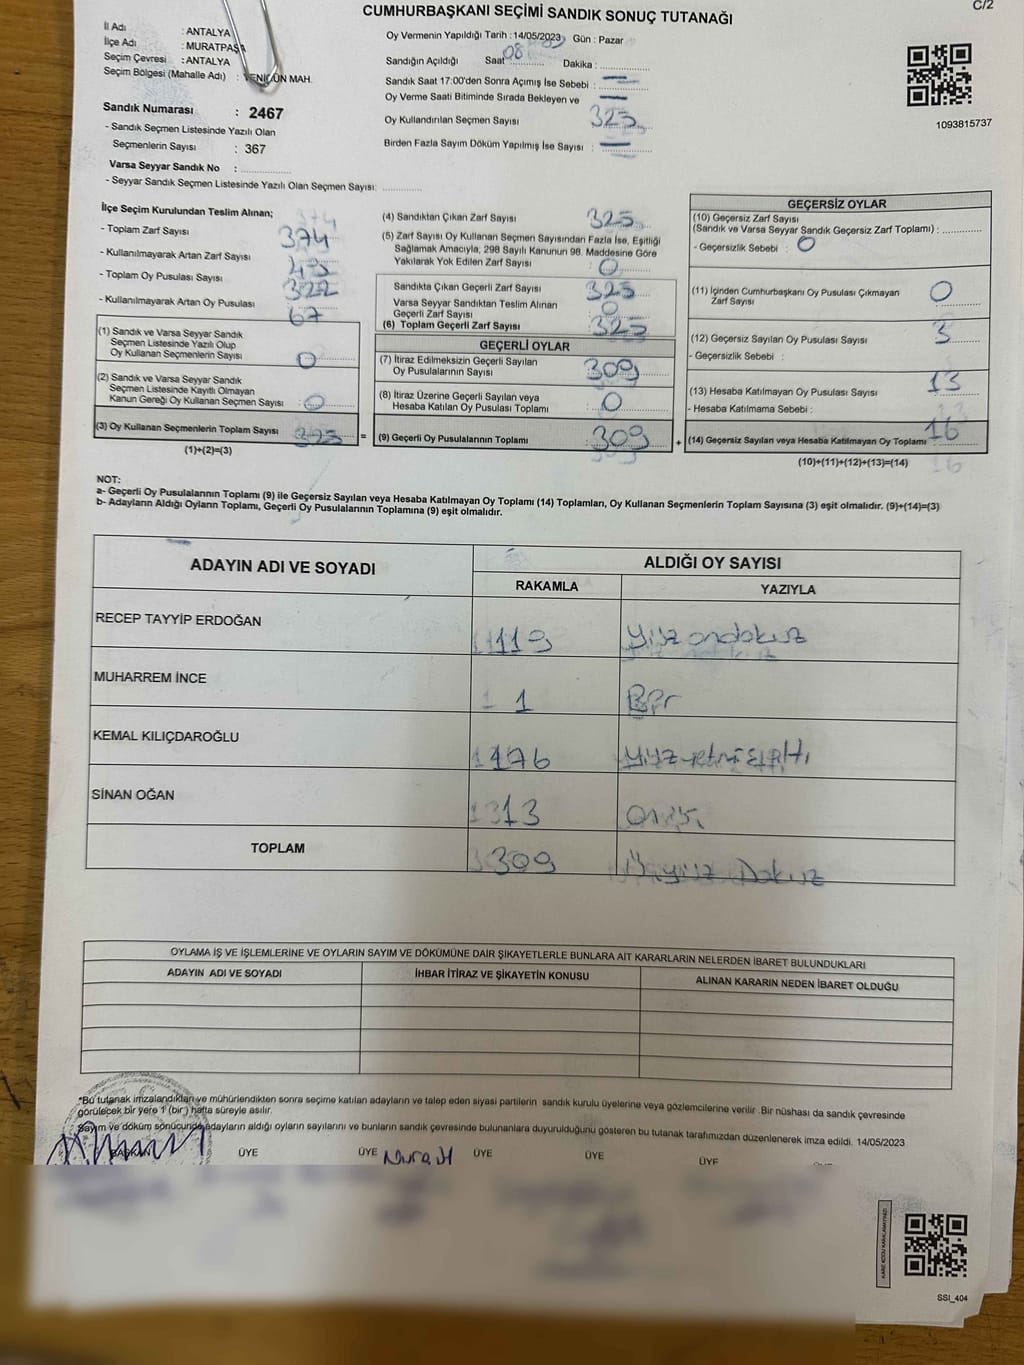 C/2
CUMHURBAŞKANI SEÇİMİ SANDIK SONUÇ TUTANAĞI
İl Adı : ANTALYA
İlçe Adı : MURATPAŞA
Seçim Çevresi : ANTALYA
Seçim Bölgesi (Mahalle Adı) : YENİGÜN MAH.
Sandık Numarası : 2467
- Sandık Seçmen Listesinde Yazılı Olan
Seçmenlerin Sayısı : 367
Varsa Seyyar Sandık No :
- Seyyar Sandık Seçmen Listesinde Yazılı Olan Seçmen Sayısı:
Oy Vermenin Yapıldığı Tarih : 14/05/2023 Gün : Pazar
Sandığın Açıldığı Saat 08 Dakika :
Sandık Saat 17:00'den Sonra Açımış İse Sebebi :
Oy Verme Saati Bitiminde Sırada Bekleyen ve
Oy Kullandırılan Seçmen Sayısı 325
Birden Fazla Sayım Döküm Yapılmış İse Sayısı :
1093815737
İlçe Seçim Kurulundan Teslim Alınan;
- Toplam Zarf Sayısı 374
- Kullanılmayarak Artan Zarf Sayısı
- Toplam Oy Pusulası Sayısı 322
- Kullanılmayarak Artan Oy Pusulası 67
(1) Sandık ve Varsa Seyyar Sandık
Seçmen Listesinde Yazılı Olup
Oy Kullanan Seçmenlerin Sayısı 0
(2) Sandık ve Varsa Seyyar Sandık
Seçmen Listesinde Kayıtlı Olmayan
Kanun Gereği Oy Kullanan Seçmen Sayısı : 0
(3) Oy Kullanan Seçmenlerin Toplam Sayısı 325
(1)+(2)=(3)
(4) Sandıktan Çıkan Zarf Sayısı 325
(5) Zarf Sayısı Oy Kullanan Seçmen Sayısından Fazla İse, Eşitliği
Sağlamak Amacıyla, 298 Sayılı Kanunun 98. Maddesine Göre
Yakılarak Yok Edilen Zarf Sayısı : 0
Sandıkta Çıkan Geçerli Zarf Sayısı 325
Varsa Seyyar Sandıktan Teslim Alınan
Geçerli Zarf Sayısı 0
(6) Toplam Geçerli Zarf Sayısı 325
GEÇERLİ OYLAR
(7) İtiraz Edilmeksizin Geçerli Sayılan
Oy Pusulalarının Sayısı 309
(8) İtiraz Üzerine Geçerli Sayılan veya
Hesaba Katılan Oy Pusulası Toplamı 0
= (9) Geçerli Oy Pusulalarının Toplamı 309
GEÇERSİZ OYLAR
(10) Geçersiz Zarf Sayısı
(Sandık ve Varsa Seyyar Sandık Geçersiz Zarf Toplamı) :
- Geçersizlik Sebebi : 0
(11) İçinden Cumhurbaşkanı Oy Pusulası Çıkmayan
Zarf Sayısı 0
(12) Geçersiz Sayılan Oy Pusulası Sayısı 3
- Geçersizlik Sebebi :
(13) Hesaba Katılmayan Oy Pusulası Sayısı 13
- Hesaba Katılmama Sebebi :
+ (14) Geçersiz Sayılan veya Hesaba Katılmayan Oy Toplamı 16
(10)+(11)+(12)+(13)=(14)
NOT:
a- Geçerli Oy Pusulalarının Toplamı (9) ile Geçersiz Sayılan veya Hesaba Katılmayan Oy Toplamı (14) Toplamları, Oy Kullanan Seçmenlerin Toplam Sayısına (3) eşit olmalıdır. (9)+(14)=(3)
b- Adayların Aldığı Oyların Toplamı, Geçerli Oy Pusulalarının Toplamına (9) eşit olmalıdır.
ADAYIN ADI VE SOYADI ALDIĞI OY SAYISI
RAKAMLA YAZIYLA
RECEP TAYYİP ERDOĞAN 119 Yüz ondokuz
MUHARREM İNCE 1 Bir
KEMAL KILIÇDAROĞLU 176 yüz yetmişaltı
SİNAN OĞAN 13 Onüç
TOPLAM 309 Üçyüz Dokuz
OYLAMA İŞ VE İŞLEMLERİNE VE OYLARIN SAYIM VE DÖKÜMÜNE DAİR ŞİKAYETLERLE BUNLARA AİT KARARLARIN NELERDEN İBARET BULUNDUKLARI
ADAYIN ADI VE SOYADI İHBAR İTİRAZ VE ŞİKAYETİN KONUSU ALINAN KARARIN NEDEN İBARET OLDUĞU
*Bu tutanak imzalandıktan ve mühürlendikten sonra seçime katılan adayların ve talep eden siyasi partilerin sandık kurulu üyelerine veya gözlemcilerine verilir. Bir nüshası da sandık çevresinde
görülecek bir yere 1 (bir) hafta süreyle asılır.
Sayım ve döküm sonucunda adayların aldığı oyların sayılarını ve bunların sandık çevresinde bulunanlara duyurulduğunu gösteren bu tutanak tarafımızdan düzenlenerek imza edildi. 14/05/2023
BAŞKAN ÜYE ÜYE ÜYE ÜYE ÜYE
SSI_404